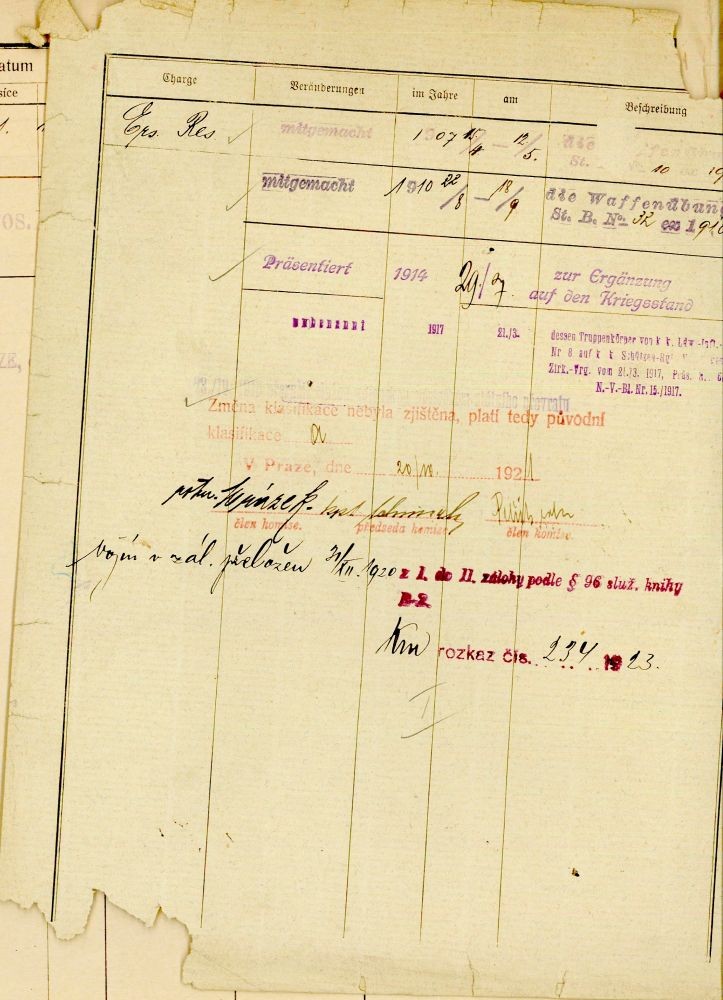 atum
síce
Charge Veränderungen im Jahre am Beschreibung
Ers. Res mitgemacht 1907 15/4 — 12/5. die
St. 10 19
mitgemacht 1910 22/8 — 18/9 die Waffenübun
St. B. No. 32 ex 1910
OS.
Präsentiert 1914 29./7. zur Ergänzung
auf den Kriegsstand
umbenannt 1917 21./3. dessen Truppenkörper von k. k. Ldw.-Inft.-
Nr 8 auf k. k. Schützen-
Zirk.-Vrg. vom 21./3. 1917, Präs.
N.-V.-Bl. Nr. 15/1917.
převratu
Změna klasifikace nebyla zjištěna, platí tedy původní
klasifikace a
V Praze, dne 20/IV. 1921
člen komise. předseda komise člen komise.
Vojín v zál. přeložen 31/XII. 1920 z I. do II. zálohy podle § 96 služ. knihy
B-2.
Km rozkaz čís. 234 1923.
I